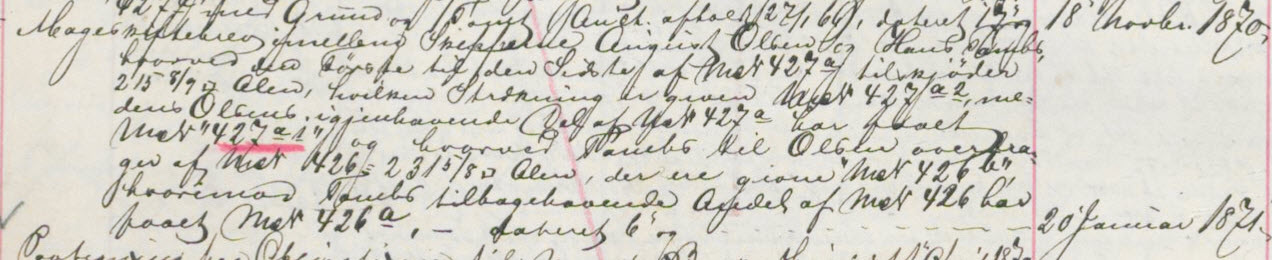 4277 med Grund og Tomt (Auct. afholdt 27/1 66), dateret 17 og 18 Novbr. 1870.
Mageskiftebrev imellem Skipperne August Olsen og Hans Tambs,
hvorved den Første til den Sidste af Mat N 427a tilskjöder
215 8/9 □ Alen, hvilken Strækning er given Mat N 427a2, me-
dens Olsens igjenhavende Del af Mat N 427a har faaet
Mat N "427a1" og hvorved Tambs til Olsen overdra-
ger af Mat N 426 = 231 5/8 □ Alen, der ere given "Mat N 426b",
hvorimod Tambs tilbagehavende Andel af Mat N 426 har
faaet Mat N 426a, — dateret 6 og 20 Januar 1871.